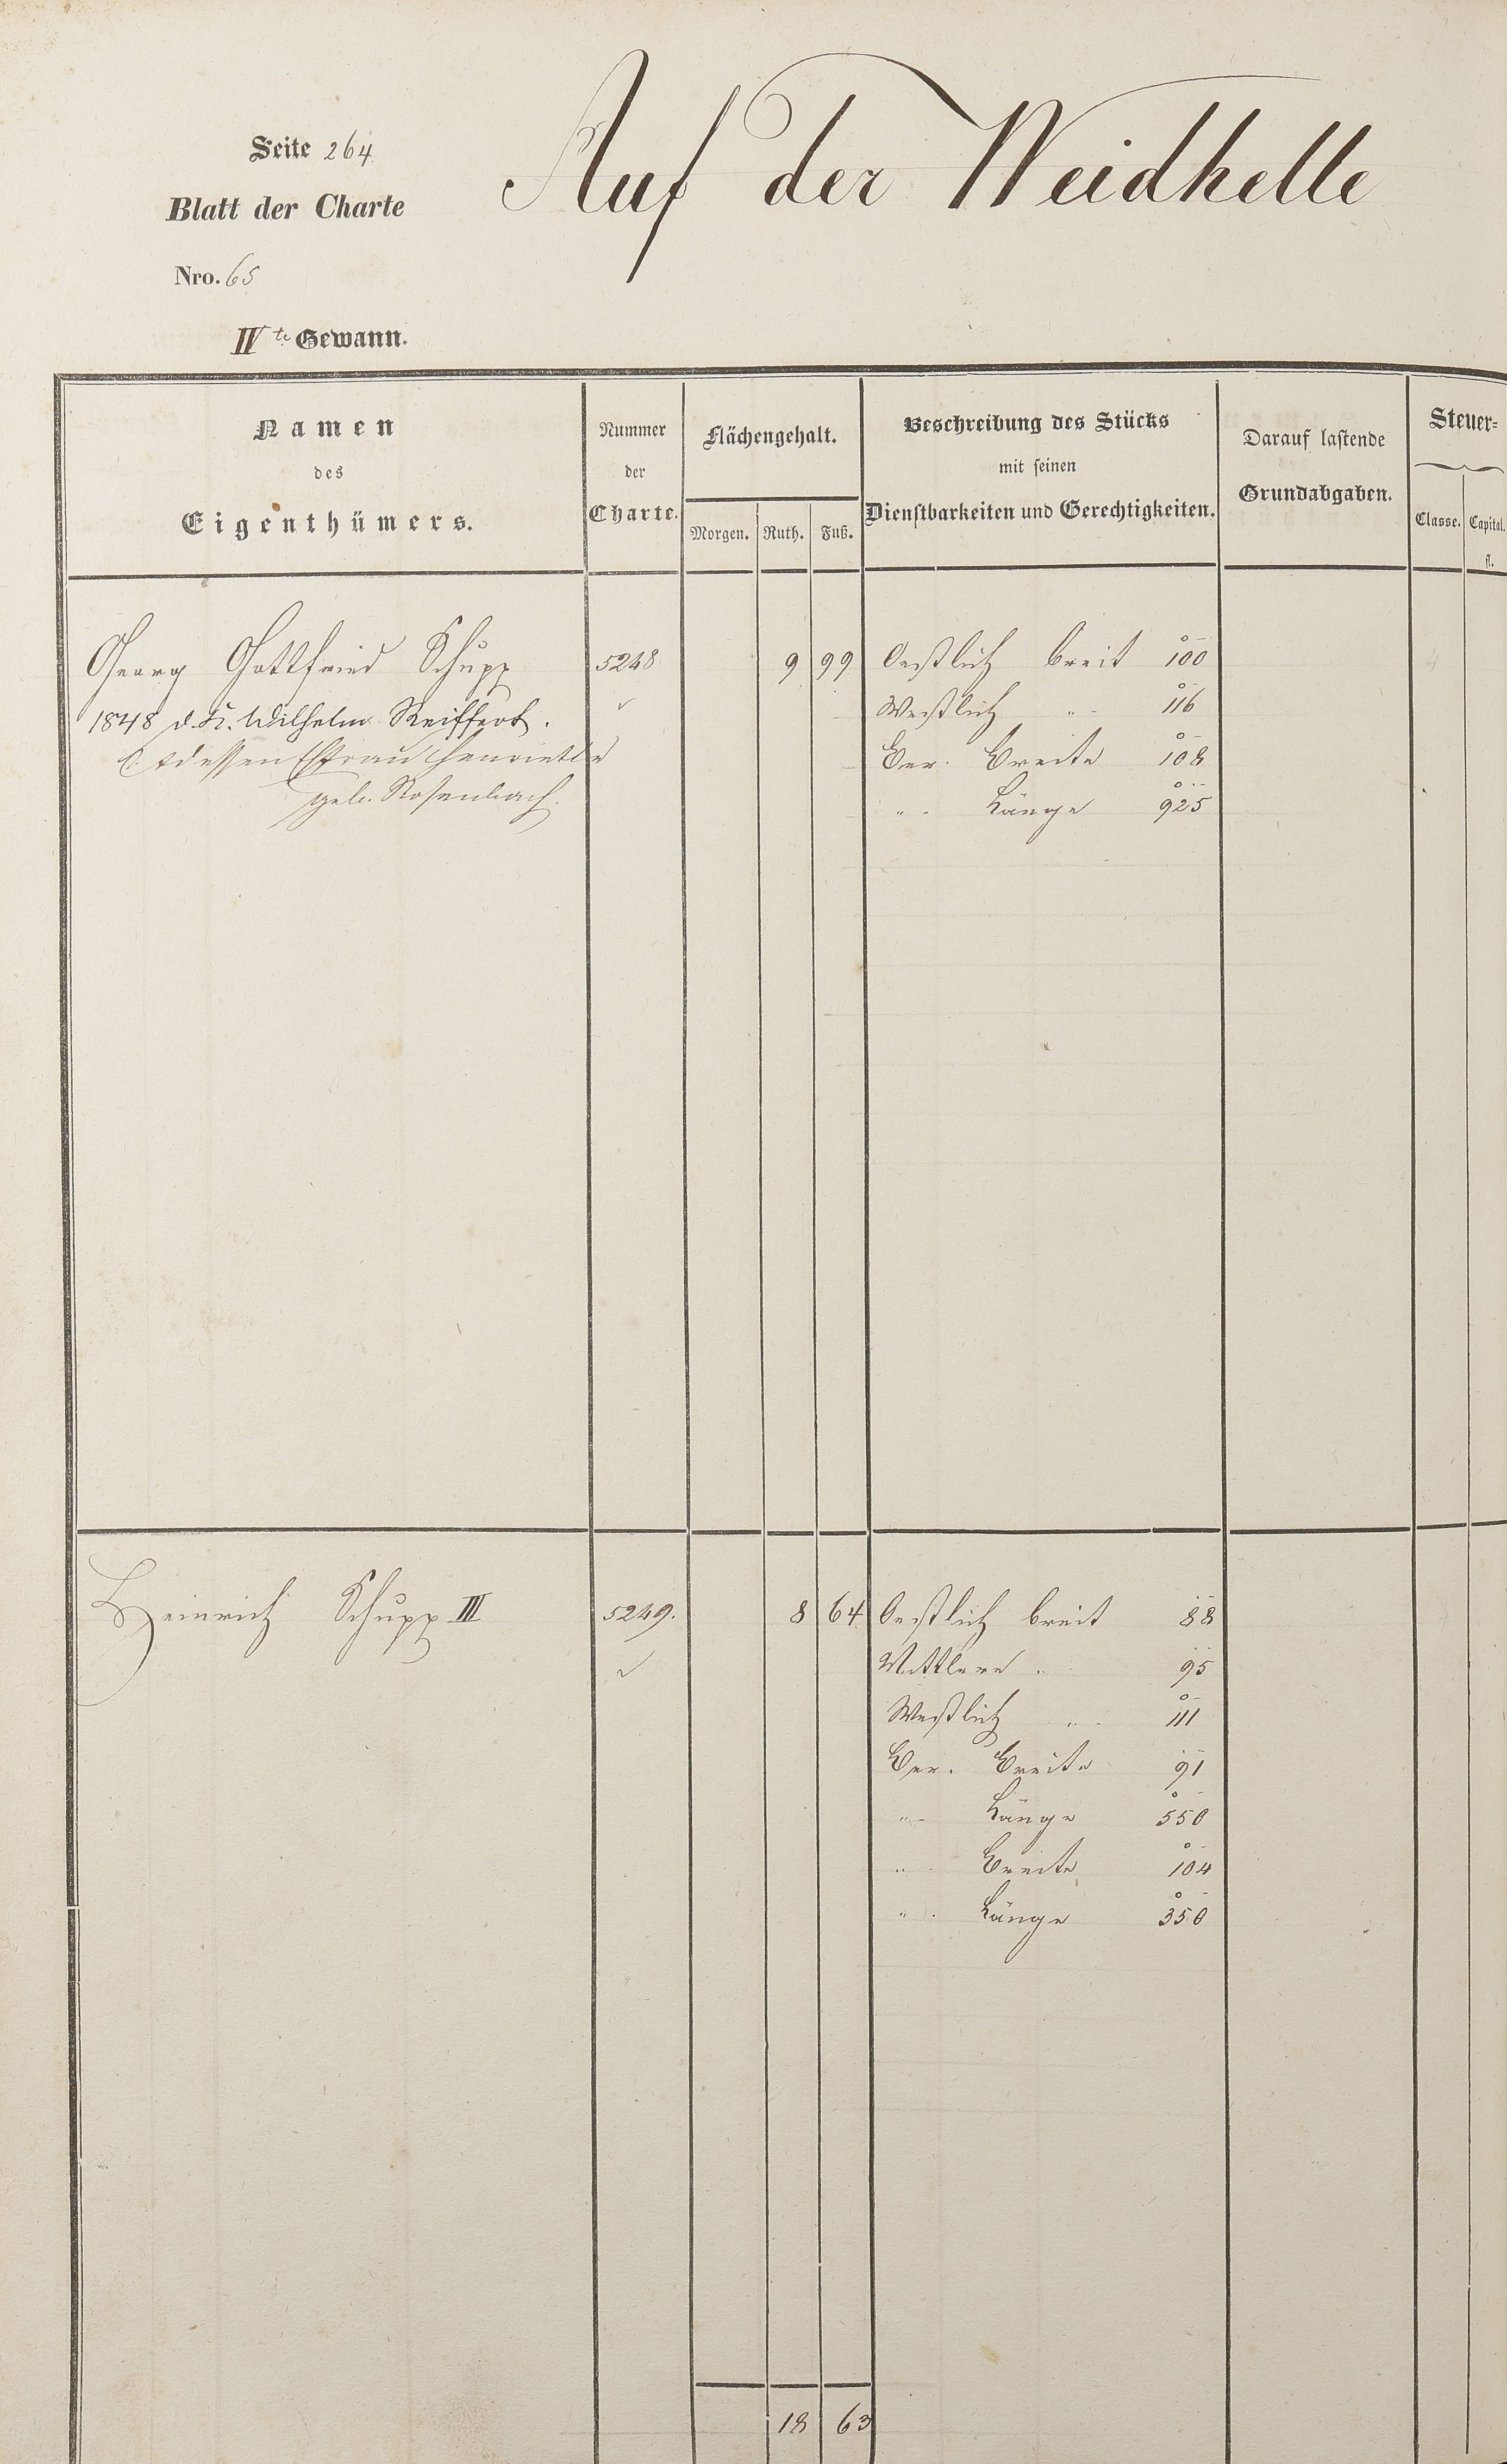 Auf der Weidhelle
Seite 264
Blatt der Charte
Nro. 65
IV te Gewann.
Namen
des
Eigenthümers.
Nummer
der
Charte.
Flächengehalt.
Morgen. Ruth. Fuß.
Beschreibung des Stücks
mit seinen
Dienstbarkeiten und Gerechtigkeiten.
Darauf lastende
Grundabgaben.
Steuer=
Classe. Capital.
fl.
Georg Gottfried Schupp 5248 9 99 Oestlich breit 100
1848 d. K. Wilhelm Reiffert. Westlich " 116
dessen Ehfrau Henriette Ber. Breite 108
geb. Rosenbach. " Länge 925
Heinrich Schupp III 5249. 8 64 Oestlich breit 88
Mittlere " 95
Westlich " 111
Ber. Breite 91
" Länge 550
" Breite 104
" Länge 350
18 63